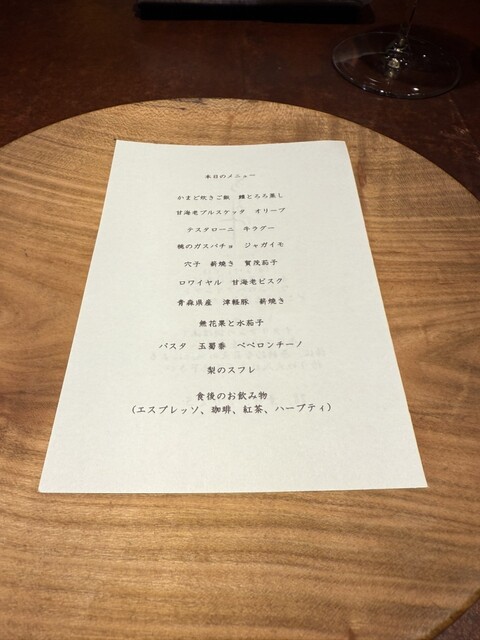 本日のメニュー
かまど炊きご飯　鱧とろろ蒸し
甘海老ブルスケッタ　オリーブ
テスタローニ　牛ラグー
桃のガスパチョ　ジャガイモ
穴子　薪焼き　賀茂茄子
ロワイヤル　甘海老ビスク
青森県産　津軽豚　薪焼き
無花果と水茄子
パスタ　玉蜀黍　ペペロンチーノ
梨のスフレ
食後のお飲み物
(エスプレッソ、珈琲、紅茶、ハーブティ)